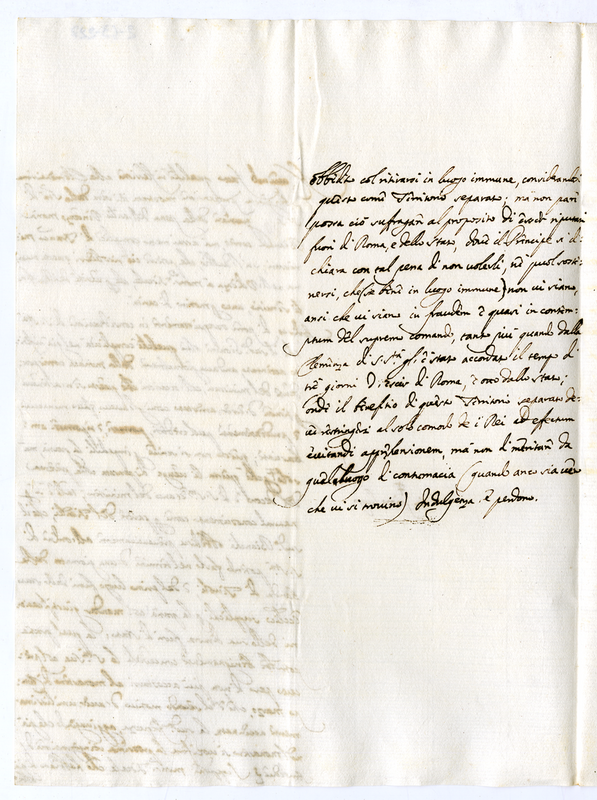 obbedito col ritirarsi in luogo immune, considerando
questo come Territorio separato; mà non pare
possa ciò suffragare al proposito di
fuori di Roma, e dello Stato, dove il Principe si di-
chiara con tal pena di non volerli, nè puol soste-
nersi, che (se bene in luogo immune) non vi siano,
anzi che vi siano in fraudem e quasi in contem-
ptum del supremo comando, tanto più quando dalla
Clemenza di S. Stà gl'è stato accordato il tempo di
trè giorni d'escir di Roma, e otto dallo Stato;
onde il Benefitio di questo Territorio separato de-
ve restringersi al solo comodo de i Rei ad effectum
evitandi apprehensionem, mà non di meritare da
quel luogo di contumacia (quando anco sia vero
che vi si trovino) Indulgenza, e perdono.